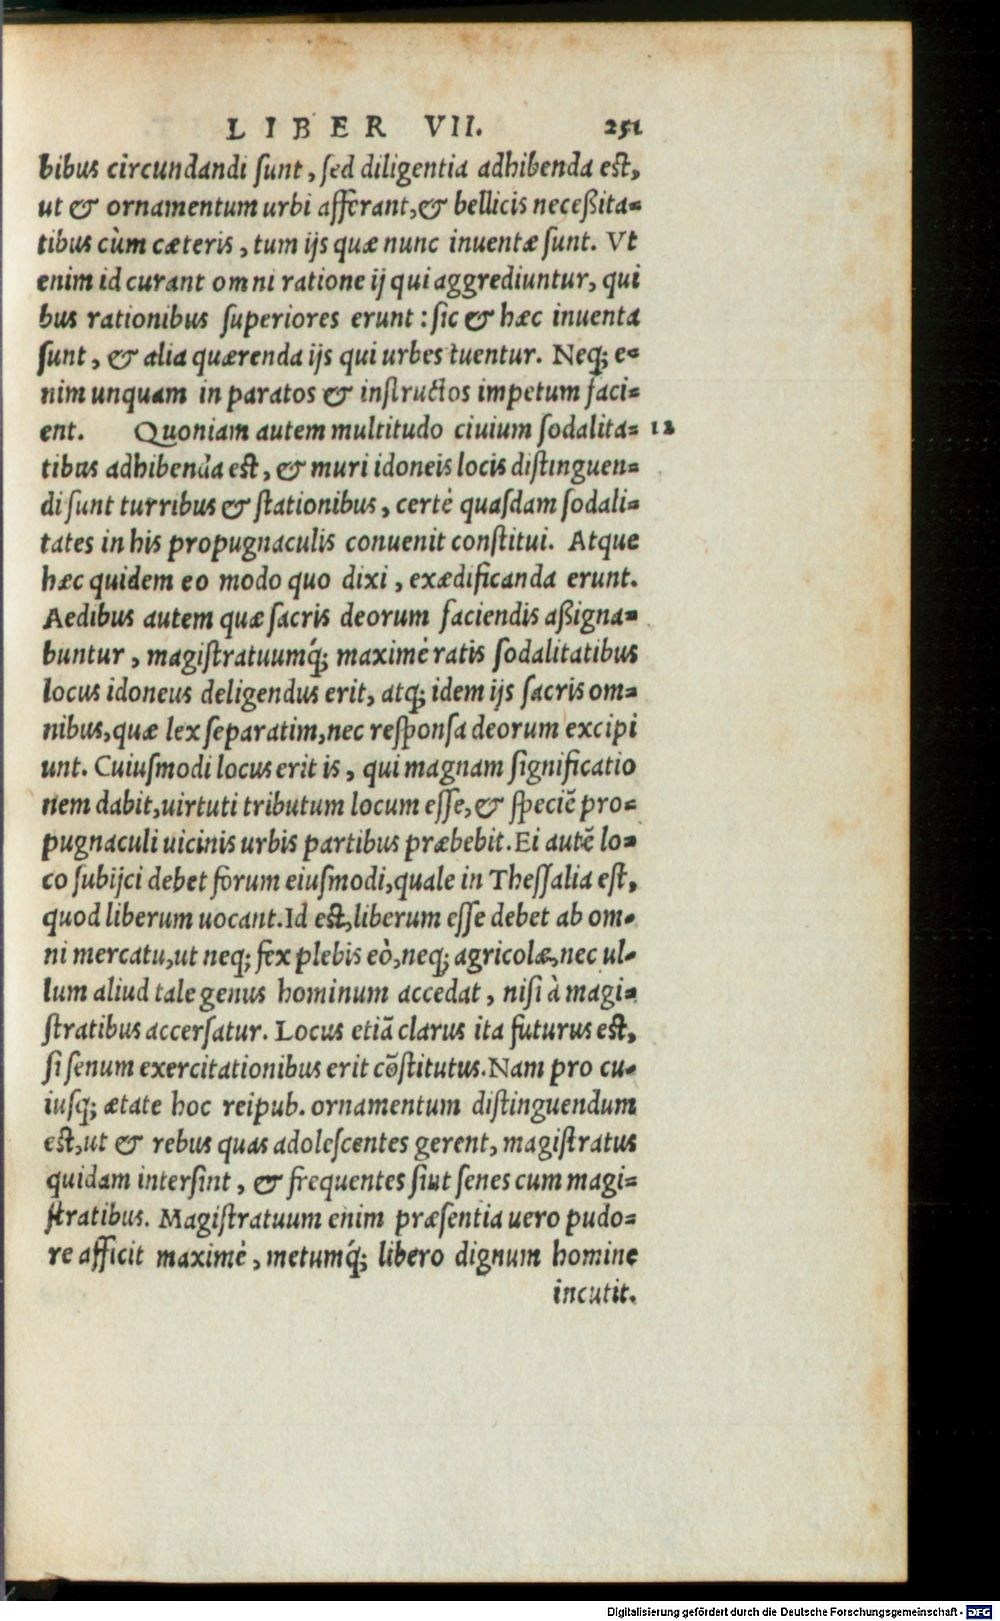 LIBER VII. 251
bibus circundandi ſunt, ſed diligentia adhibenda eſt,
ut & ornamentum urbi afferant, & bellicis neceßita=
tibus cùm cæteris, tum ijs quæ nunc inuentæ ſunt. Vt
enim id curant omni ratione ij qui aggrediuntur, qui
bus rationibus ſuperiores erunt: ſic & hæc inuenta
ſunt, & alia quærenda ijs qui urbes tuentur. Neq; e=
nim unquam in paratos & inſtructos impetum faci=
ent. Quoniam autem multitudo ciuium ſodalita= 12
tibus adhibenda eſt, & muri idoneis locis diſtinguen=
di ſunt turribus & ſtationibus, certè quaſdam ſodali=
tates in his propugnaculis conuenit conſtitui. Atque
hæc quidem eo modo quo dixi, exædificanda erunt.
Aedibus autem quæ ſacris deorum faciendis aßigna=
buntur, magiſtratuumq́; maximè ratis ſodalitatibus
locus idoneus deligendus erit, atq; idem ijs ſacris om=
nibus, quæ lex ſeparatim, nec reſponſa deorum excipi
unt. Cuiuſmodi locus erit is, qui magnam ſignificatio
nem dabit, uirtuti tributum locum eſſe, & ſpeciẽ pro=
pugnaculi uicinis urbis partibus præbebit. Ei autẽ lo=
co ſubijci debet forum eiuſmodi, quale in Theſſalia eſt,
quod liberum uocant. Id eſt, liberum eſſe debet ab om=
ni mercatu, ut neq; fex plebis eò, neq; agricolæ, nec ul=
lum aliud tale genus hominum accedat, niſi à magi=
ſtratibus accerſatur. Locus etiã clarus ita futurus eſt,
ſi ſenum exercitationibus erit cõſtitutus. Nam pro cu=
iuſq; ætate hoc reipub. ornamentum diſtinguendum
eſt, ut & rebus quas adoleſcentes gerent, magiſtratus
quidam interſint, & frequentes ſint ſenes cum magi=
ſtratibus. Magiſtratuum enim præſentia uero pudo=
re afficit maximè, metumq́; libero dignum homine
incutit.
Digitalisierung gefördert durch die Deutsche Forschungsgemeinschaft - DFG